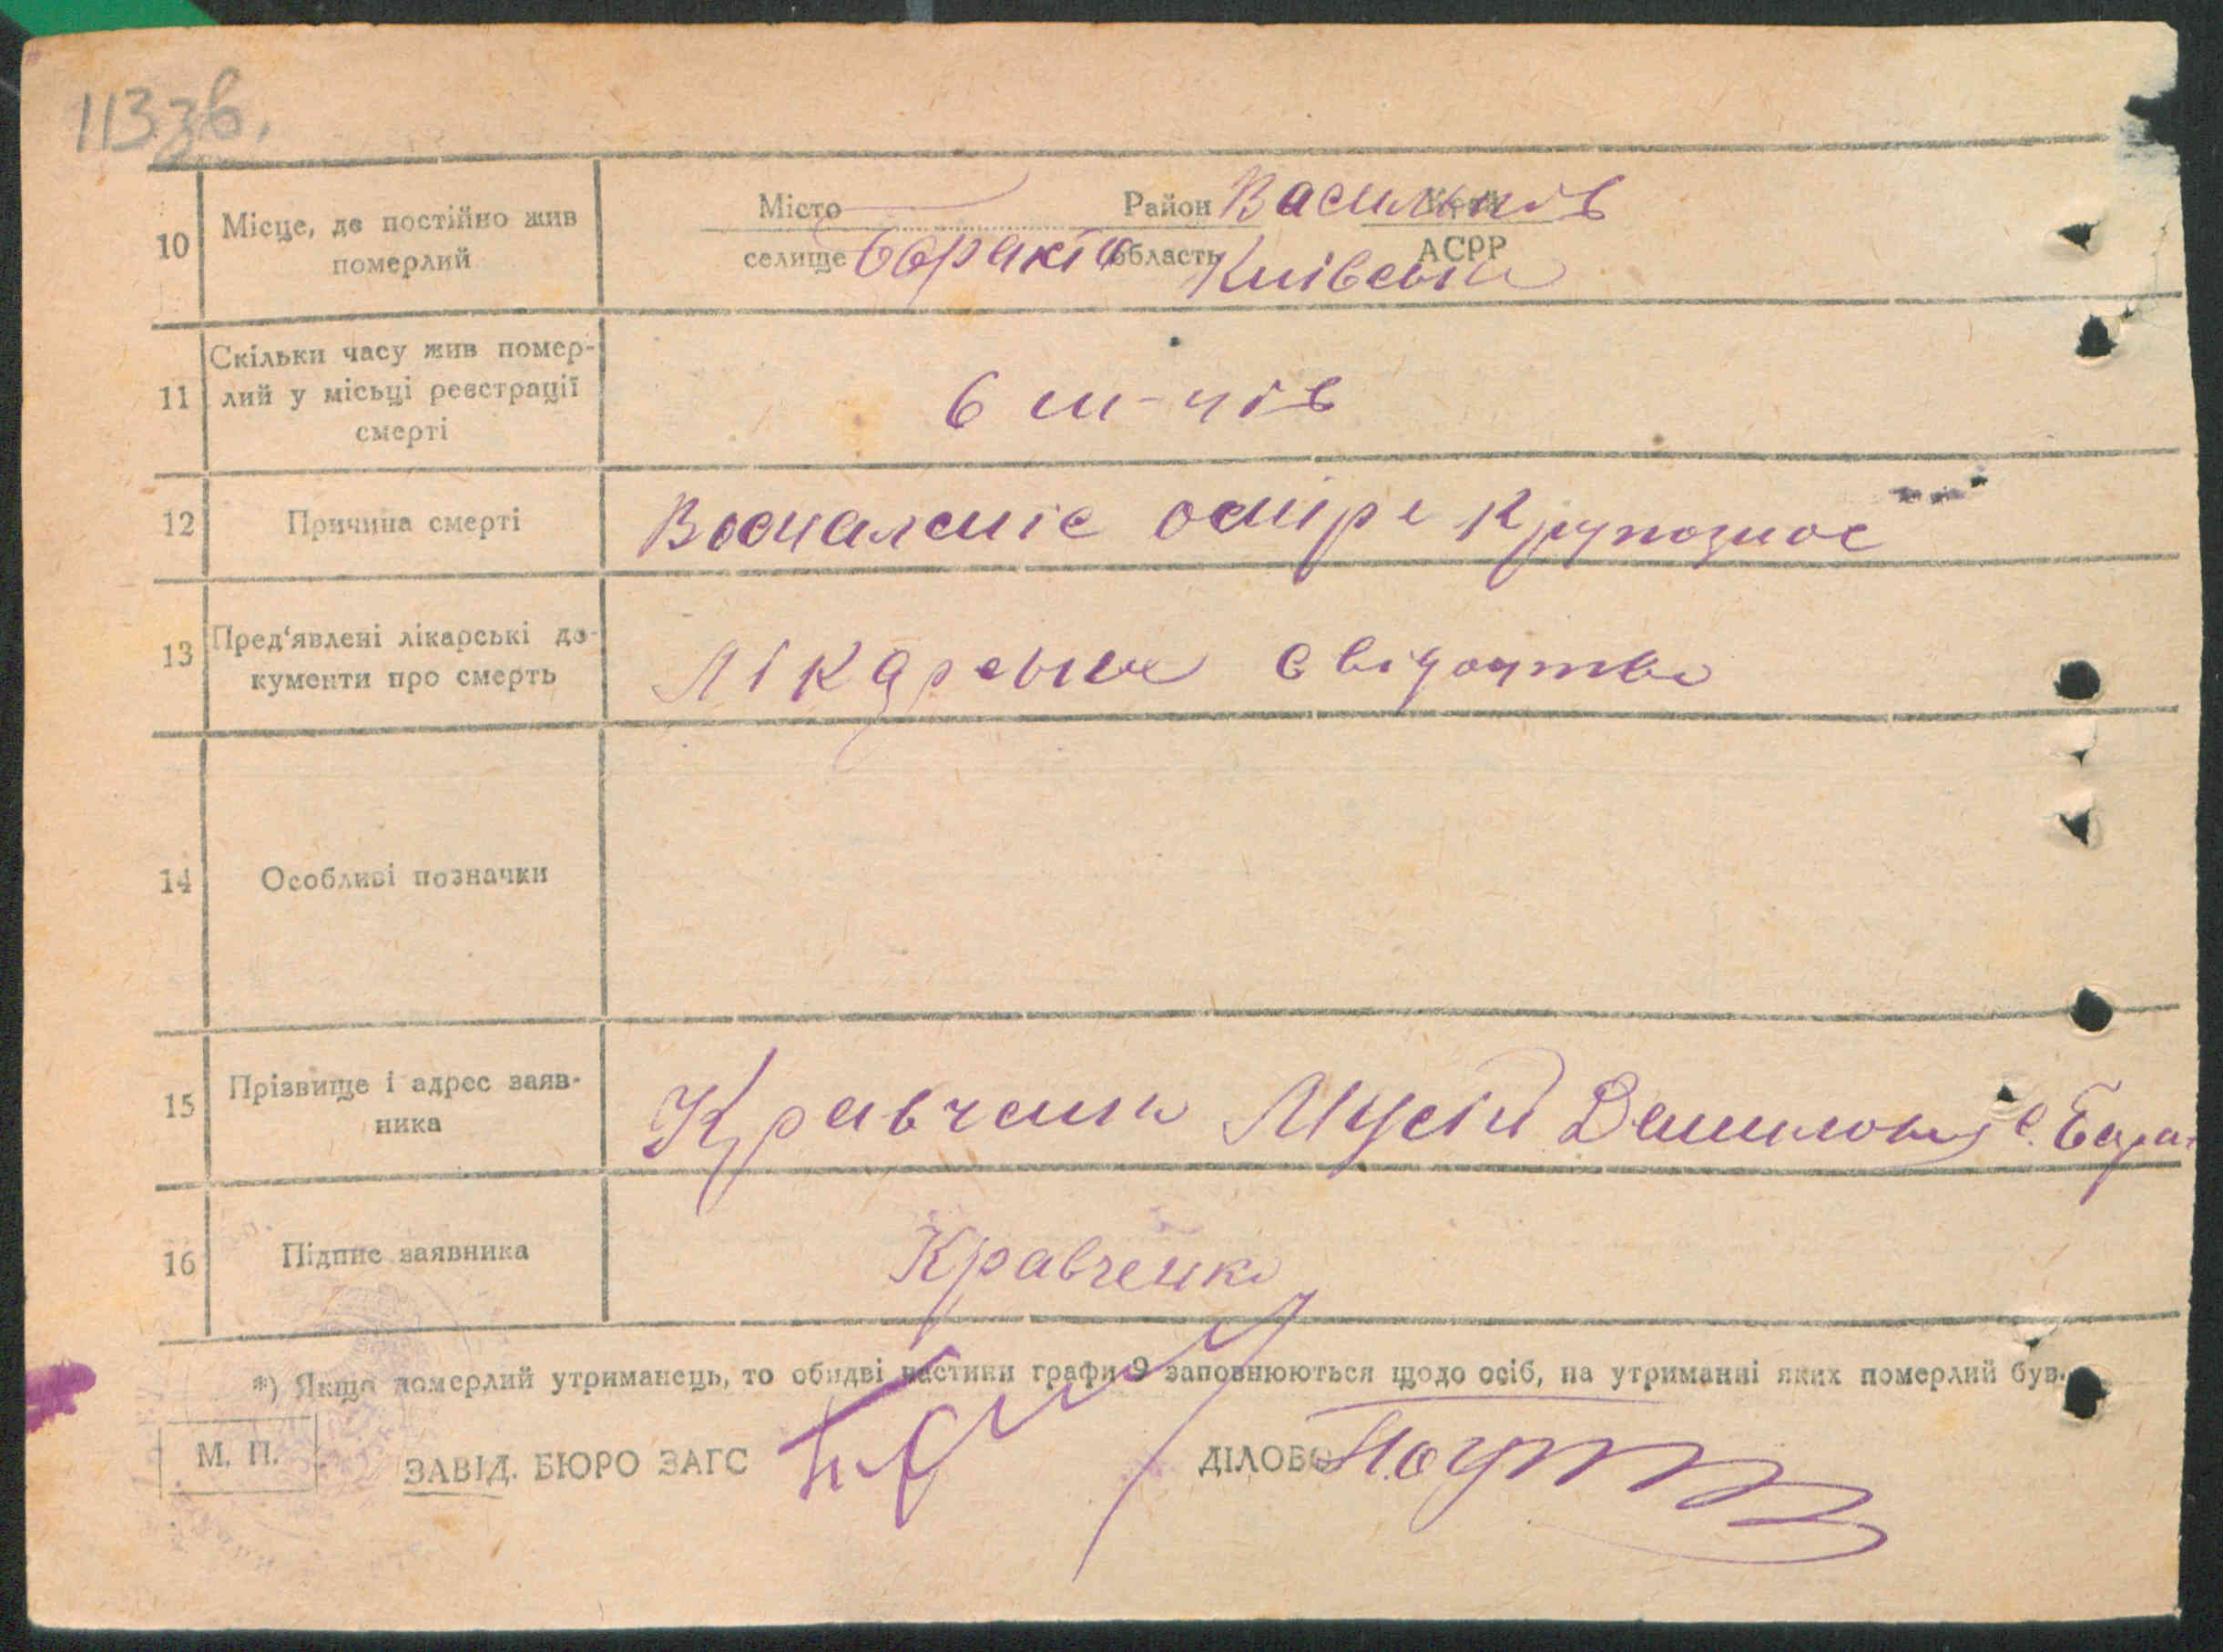 113зв.
10 Місце, де постійно жив померлий
Місто Район Васильків Край
селище Барахти область Київська АСРР
11 Скільки часу жив помер-
лий у місьці реєстрації
смерті
6 м-ців
12 Причина смерті
Воспаленіє остре Крупозное
13 Пред'явлені лікарські до-
кументи про смерть
Лікарське свідоцтво
14 Особливі позначки
15 Прізвище і адрес заяв-
ника
Кравченко Мусій Данилович с. Бара
16 Підпис заявника
Кравченко
*) Якщо померлий утриманець, то обидві частини графи 9 заповнюються щодо осіб, на утриманні яких померлий був.
М. П. ЗАВІД. БЮРО ЗАГС ДІЛОВО